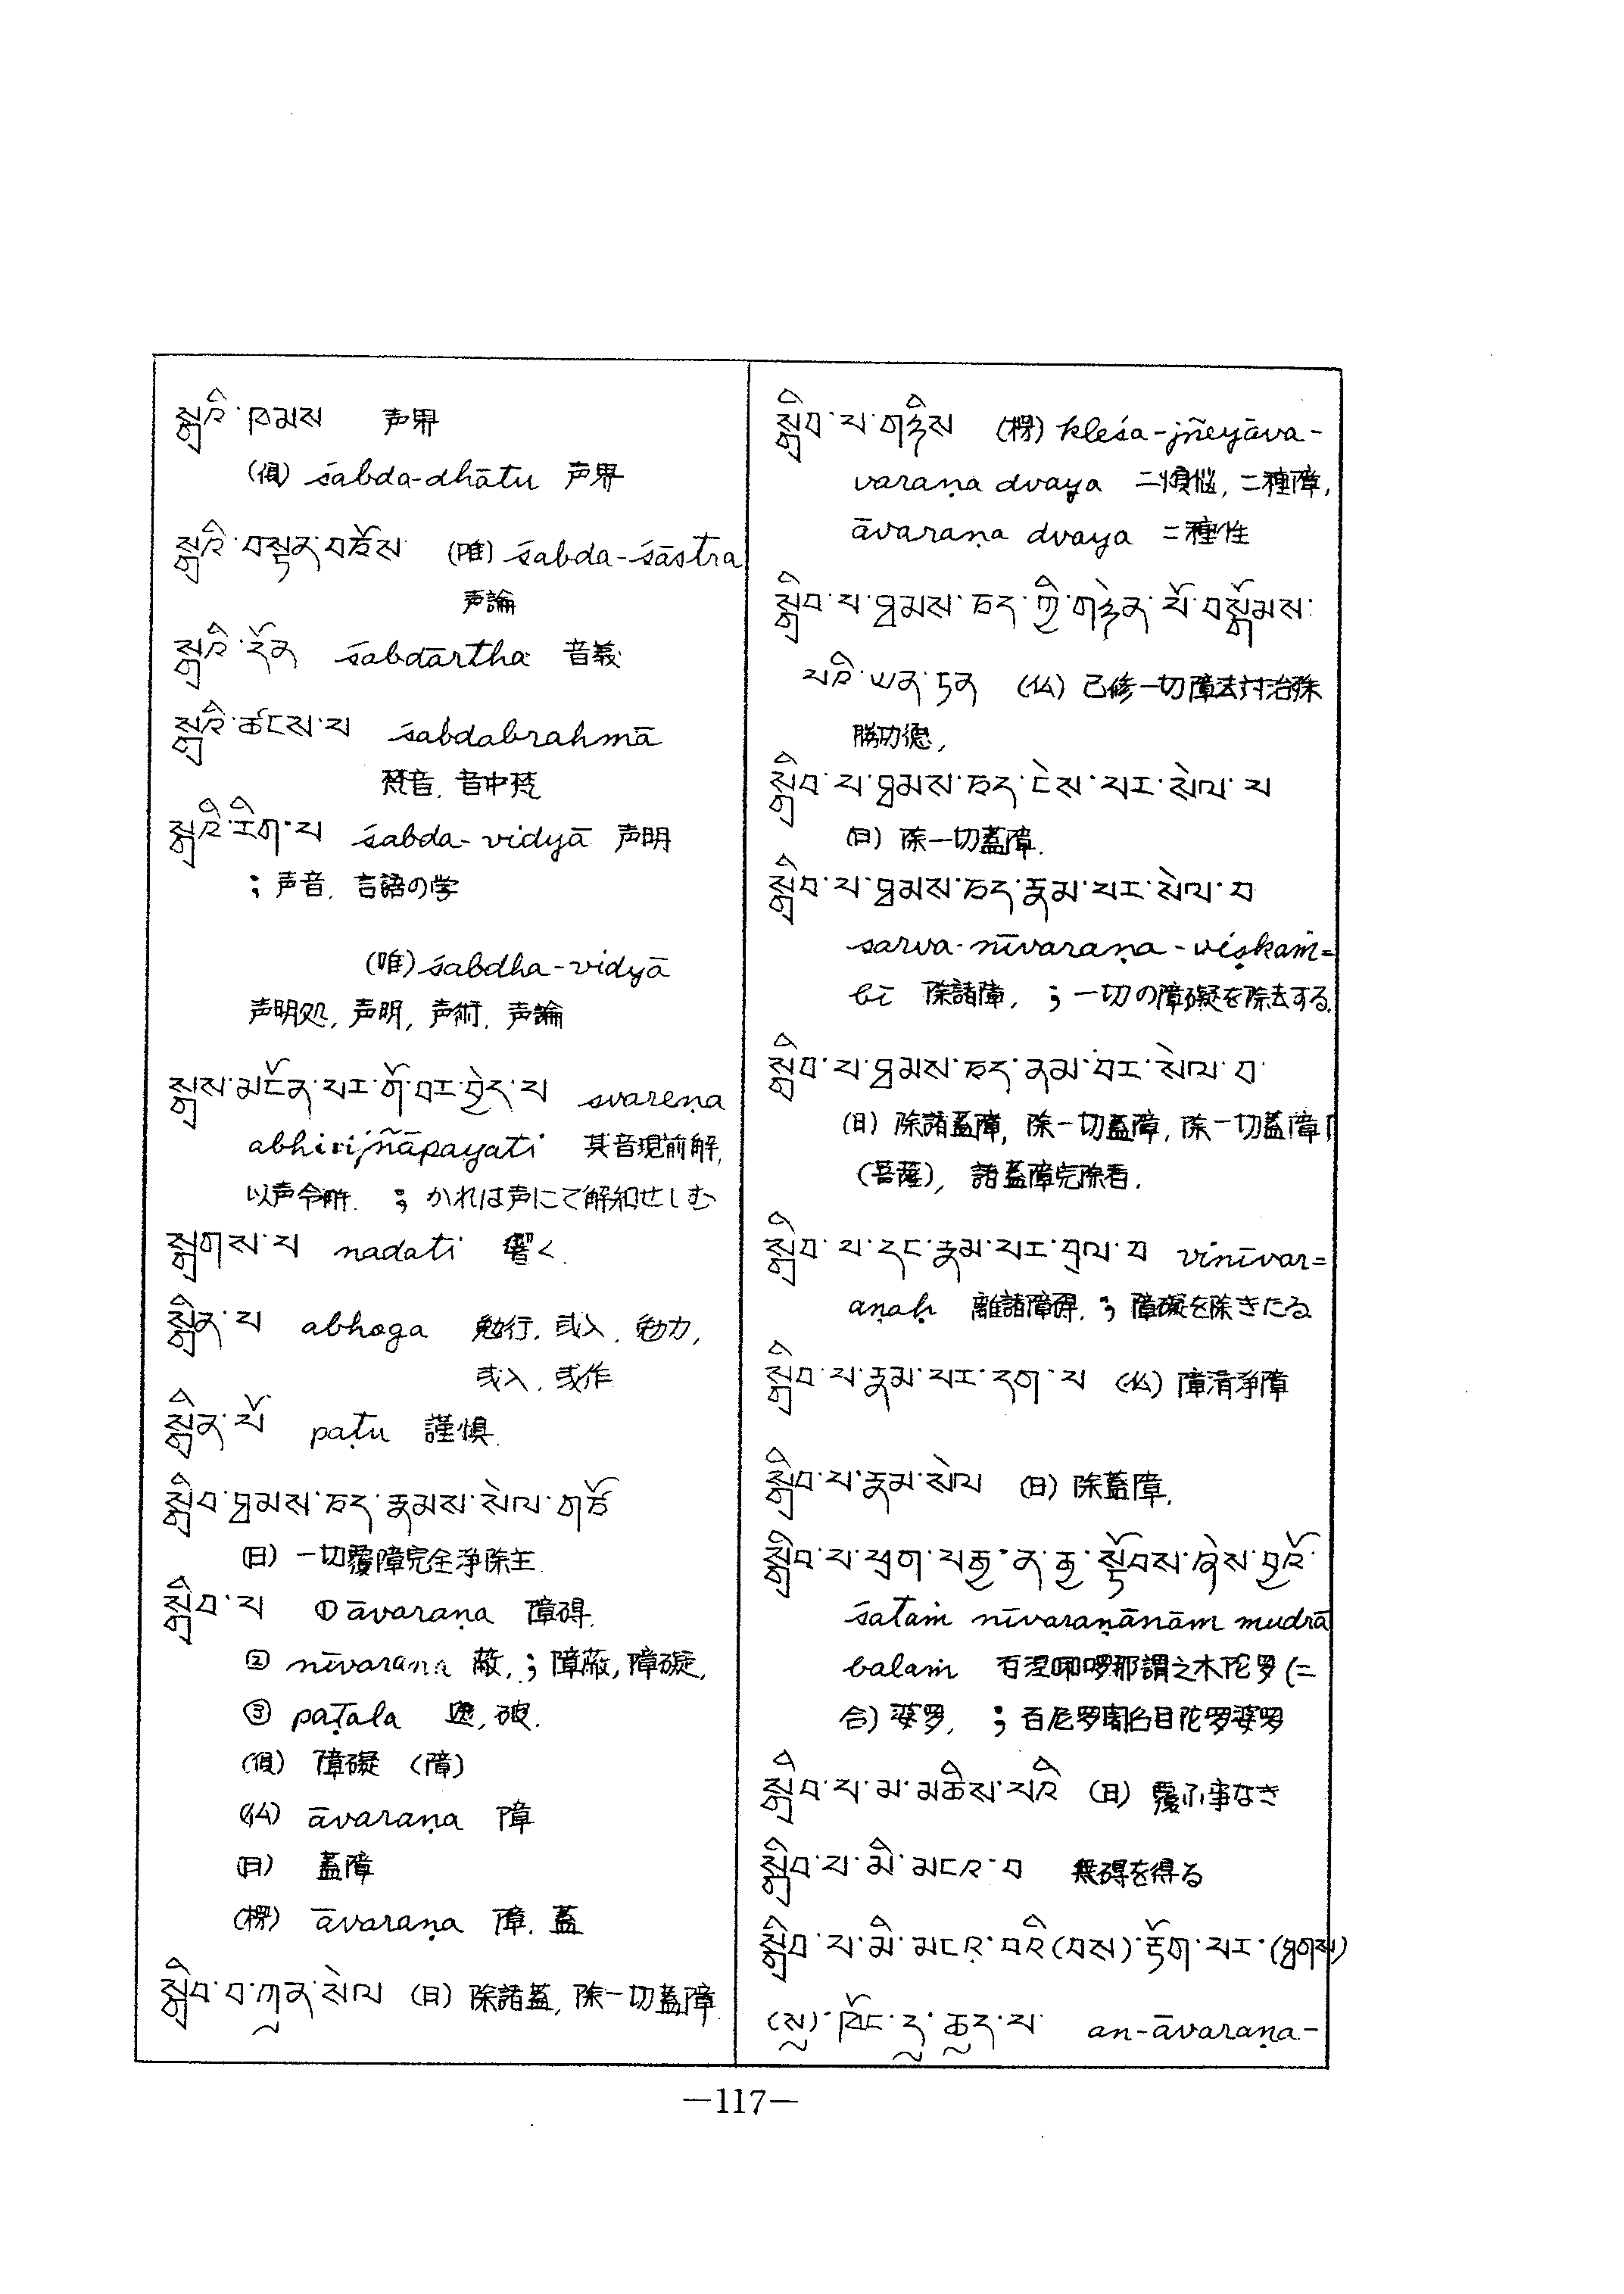 སྒྲའི་ཁམས 声界
(倶) śabda-dhātu 声界
སྒྲའི་བསྟན་བཅོས (唯) śabda-śāstra
声論
སྒྲའི་དོན śabdārtha 音義
སྒྲའི་ཚངས་པ śabdabrahmā
梵音, 音中梵
སྒྲའི་རིག་པ śabda-vidyā 声明
; 声音, 言語の学
(唯) śabdha-vidyā
声明処, 声明, 声術, 声論
སྒྲས་མངོན་པར་གོ་བར་བྱེད་པ svareṇa
abhivijñāpayati 其音現前解,
以声令解. ; かれは声にて解知せしむ
སྒྲགས་པ nadati 響く.
སྒྲིན་པ abhoga 勉行, 或入, 勉力,
或入, 或作
སྒྲིན་པོ paṭu 謹惧.
སྒྲིབ་ཐམས་ཅད་རྣམས་སེལ་གཙོ
(日) 一切覆障完全浄除主.
སྒྲིབ་པ ① āvaraṇa 障碍.
② nīvarana 蔽, ; 障蔽, 障礙,
③ paṭala 破.
(倶) 障礙 (障)
(仏) āvaraṇa 障
(日) 蓋障
(楞) āvaraṇa 障, 蓋
སྒྲིབ་བ་ཀུན་སེལ (日) 除諸蓋, 除一切蓋障.
སྒྲིབ་པ་གཉིས (楞) kleśa-jñeyāva-
varaṇa dvaya 二煩悩, 二種障,
āvaraṇa dvaya 二種性
སྒྲིབ་པ་ཐམས་ཅད་ཀྱི་གཉེན་པོ་བསྒོམས་
པའི་ཡན་ཏན (仏) 已修一切障去対治殊
勝功徳,
སྒྲིབ་པ་ཐམས་ཅད་ངེས་པར་སེལ་པ
(日) 除一切蓋障.
སྒྲིབ་པ་ཐམས་ཅད་རྣམ་པར་སེལ་བ
sarva-nīvaraṇa-viṣkaṁ=
bī 除諸障, ; 一切の障礙を除去する.
སྒྲིབ་པ་ཐམས་ཅད་ནམ་བར་སེལ་བ
(日) 除諸蓋障, 除一切蓋障, 除一切蓋障
(菩薩), 諸蓋障完除者.
སྒྲིབ་པ་དང་རྣམ་པར་བྲལ་བ vinīvar=
aṇaḥ 離諸障碍, ; 障礙を除きたる
སྒྲིབ་པ་རྣམ་པར་དག་པ (仏) 障清浄障
སྒྲིབ་པ་རྣམ་སེལ (日) 除蓋障,
སྒྲིབ་པ་ཕྲག་པརྒྱ་ན་རྒྱ་སྟོབས་ཞེས་བྱའོ་
śataṁ nīvaraṇānāṁ mudrā
balaṁ 百涅嚩啰那謂之木陀罗 (二
合) 婆罗, ; 百尼罗閣名目陀罗婆罗
སྒྲིབ་པ་མ་མཆིས་པའི (日) 覆ふ事なき
སྒྲིབ་པ་མི་མངའ་བ 無碍を得る
སྒྲིབ་པ་མི་མངའ་བའི(བས)་རྟོག་པར་(ཐུགས)
(སུ)་ཁོང་དུ་ཆུད་པ an-āvaraṇa-
—117—